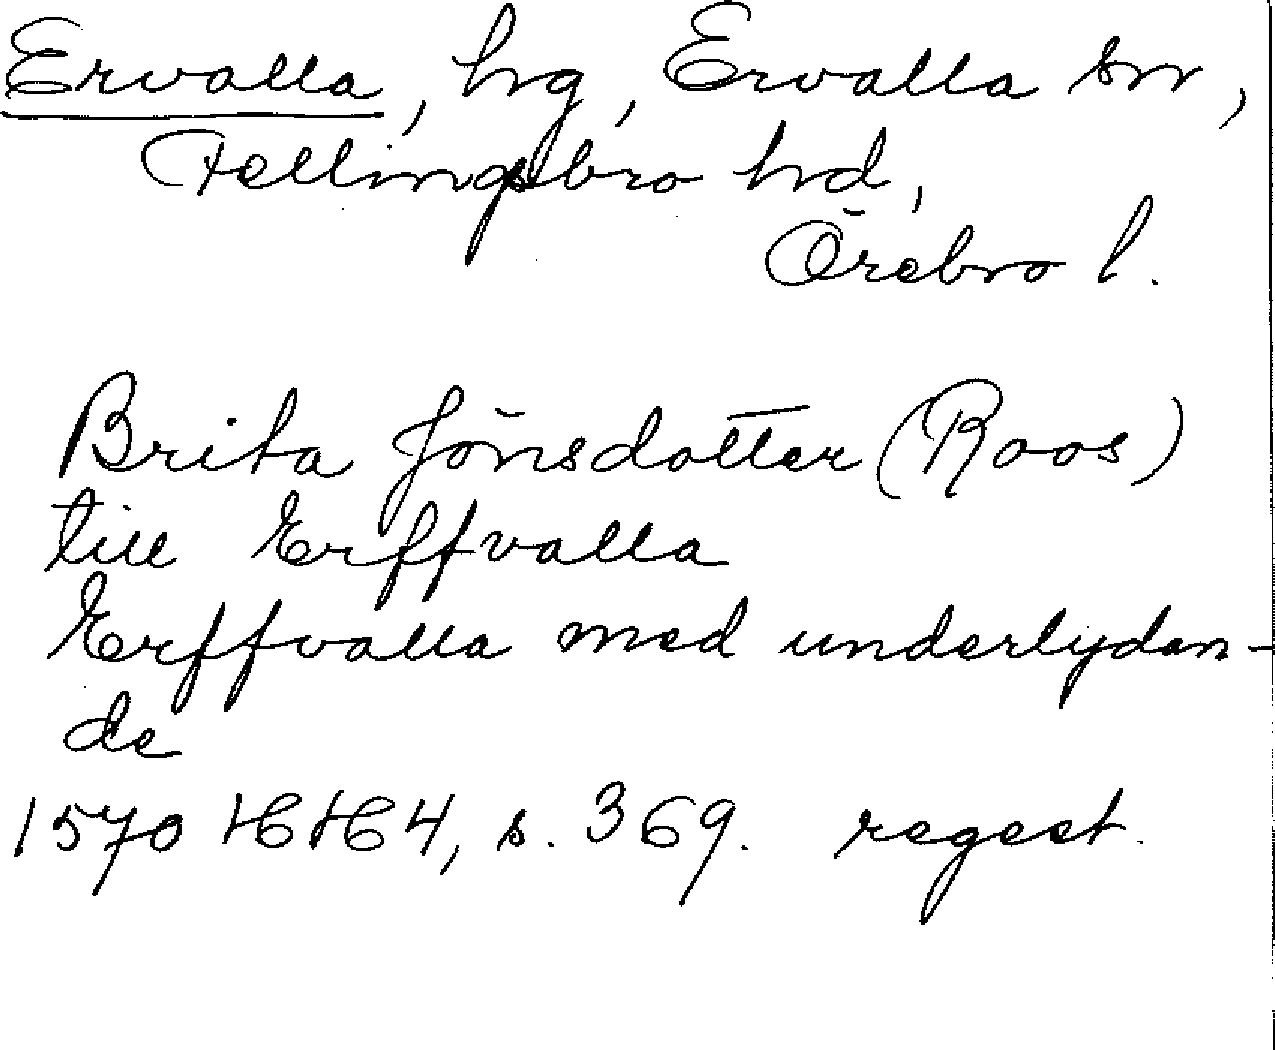 Ervalla, hrg, Ervalla sn,
Fellingsbro hrd,
Örebro l.
Brita Jönsdotter (Roos)
till Erffvalla
Erffvalla med underlydan-
de
1570 HH 4, s. 369. regest.